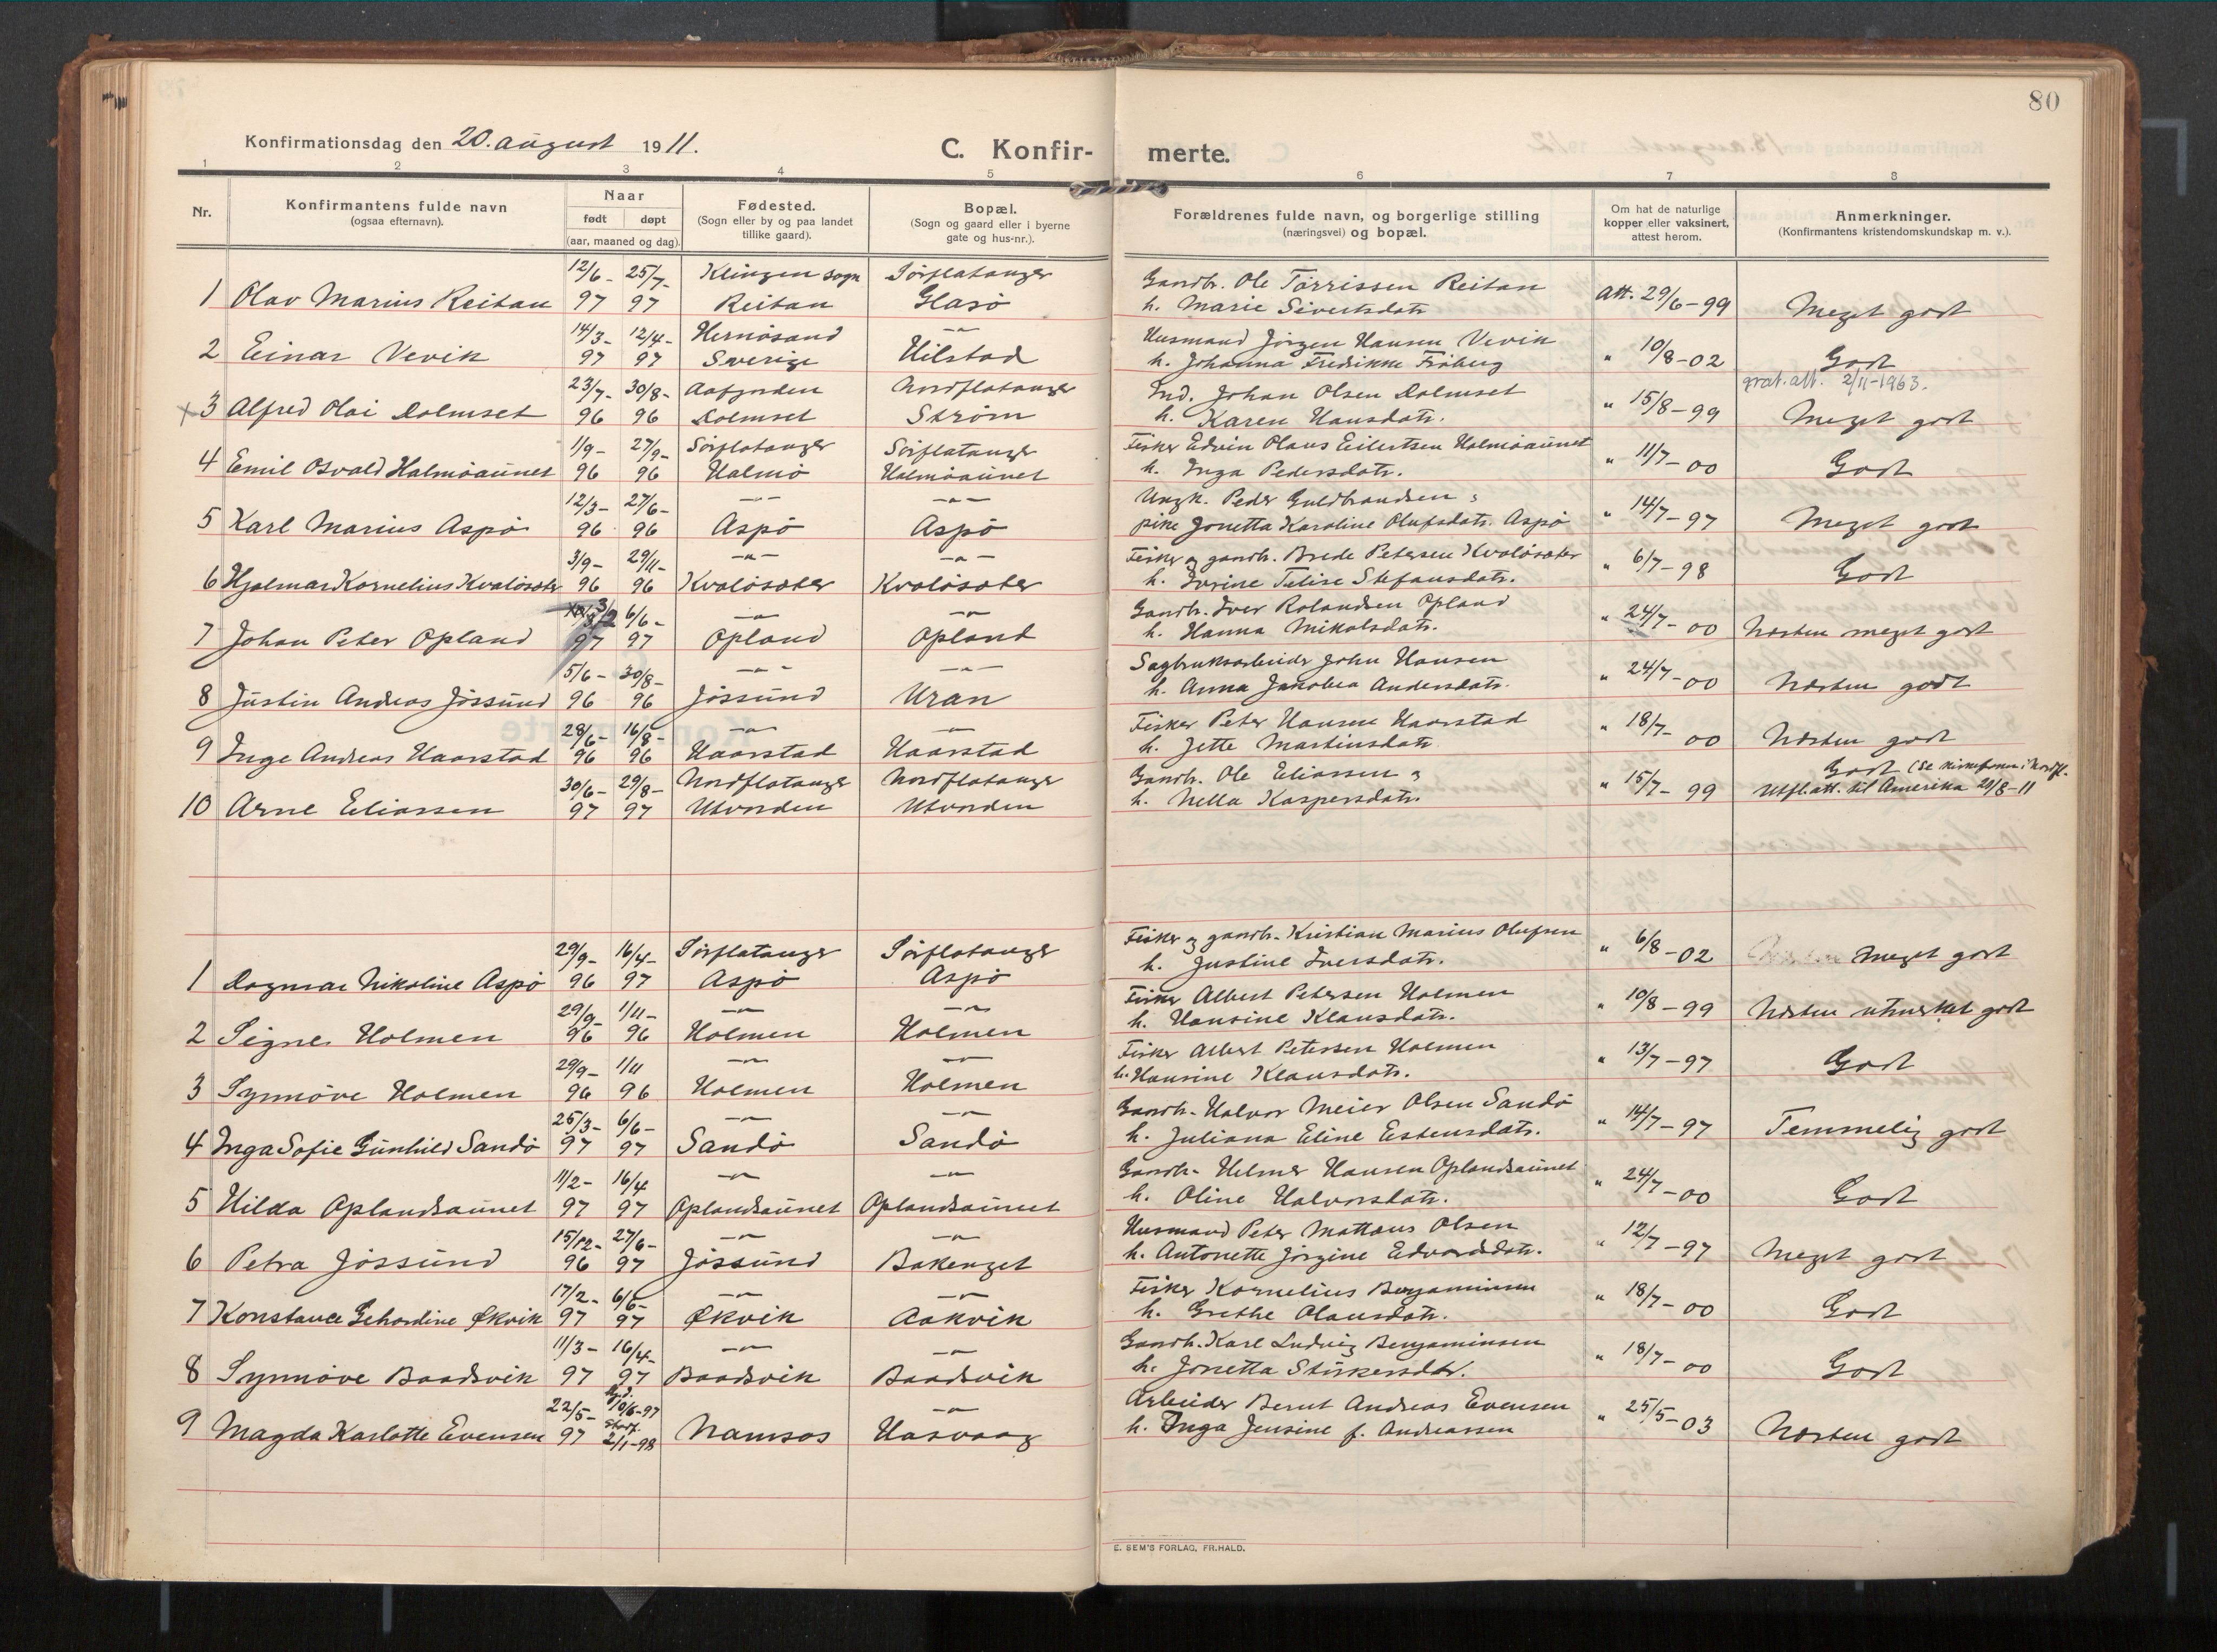 80
Konfirmationsdag den 20. august 1911.
C. Konfir- merte.
1 2 3 4 5 6 7 8
Nr.
Konfirmantens fulde navn
(ogsaa efternavn).
Naar
født døpt
(aar, maaned og dag).
Fødested.
(Sogn eller by og paa landet
tillike gaard).
Bopæl.
(Sogn og gaard eller i byerne
gate og hus-nr.).
Forældrenes fulde navn, og borgerlige stilling
(næringsvei) og bopæl.
Om hat de naturlige
kopper eller vaksinert,
attest herom.
Anmerkninger.
(Konfirmantens kristendomskundskap m. v.).
12/6- 25/7- Klingen sogn Sörflatanger Gaardbr. Ole Tørrissen Reitan
1 Olav Marius Reitan 97 97 Reitan Glasö h. Marie Sivertsdatr. Att. 29/6-99 Meget godt
14/3- 12/4- Hernösand -"- Husmand Jörgen Hansen Vevik
2 Einar Vevik 97 97 Sverige Hilstad h. Johanna Fredrikke Fröberg " 10/8-02 Godt
grat. att. 2/11-1963.
23/7- 30/8- Aafjorden Nordflatanger Ind. Johan Olsen Dolmset
x 3 Alfred Olai Dolmset 96 96 Dolmset Ström h. Karen Hansdatr. " 15/8-99 Meget godt
1/9- 27/9- Sörflatanger Sörflatanger Fisker Edvin Olaus Eilertsen Halmöaunet
4 Emil Osvald Halmöaunet 96 96 Halmö Halmöaunet h. Inga Pedersdatr. " 11/7-00 Godt
12/3- 27/6- -"- -"- Ungk. Peder Guldbrandsen &
5 Karl Marius Aspö 96 96 Aspö Aspö pike Jonetta Karoline Olufsdatr. Aspö " 14/7-97 Meget godt
3/9- 29/11- -"- -"- Fisker og gaardb. Brede Petersen Kvalösæter
6 Hjalmar Kornelius Kvalösæter 96 96 Kvalösæter Kvalösæter h. Ivrine Telise Stefansdatr. " 6/7-98 Godt
3/2 6/6- -"- -"- Gaardb. Iver Rolandsen Opland
7 Johan Peter Opland 97 97 Opland Opland h. Hanna Nikolsdatr. " 24/7-00 Næsten meget godt
5/6- 30/8- -"- -"- Sagbruksarbeider John Hansen
8 Justin Andreas Jössund 96 96 Jössund Uran h. Anna Jakobea Andersdatr. " 24/7-00 Næsten godt
28/6- 16/8- -"- -"- Fisker Peter Hansen Haarstad
9 Inge Andreas Haarstad 96 96 Haarstad Haarstad h. Jette Martinsdatr " 18/7-00 Næsten godt
30/6- 29/8- Nordflatanger Nordflatanger Gaardb. Ole Eliassen & Godt
10 Arne Eliassen 97 97 Utvorden Utvorden h. Nella Kaspersdatr. " 15/7-99 Utfl.att. til Amerika 20/8-11
29/9- 16/4- Sörflatanger Sörflatanger Fisker og gaardb. Kristian Marius Olufsen
1 Dagmar Nikoline Aspö 96 97 Aspö Aspö h. Justine Iversdatr. " 6/8-02 Meget godt
29/9- 1/11- -"- -"- Fisker Albert Petersen Holmen
2 Signe Holmen 96 96 Holmen Holmen h. Hansine Klausdatr. " 10/8-99 Næsten utmerket godt
29/9- 1/11 -"- -"- Fisker Albert Petersen Holmen
3 Synnöve Holmen 96 96 Holmen Holmen h. Hansine Klausdatr. " 13/7-97 Godt
25/3- 6/6- -"- -"- Gaardb. Halvor Meier Olsen Sandö
4 Inga Sofie Gunhild Sandö 97 97 Sandö Sandö h. Juliana Eline Estensdatr. " 14/7-97 Temmelig godt
11/2- 16/4 -"- -"- Gaardb. Helmer Hansen Oplandsaunet
5 Hilda Oplandsaunet 97 97 Oplandsaunet Oplandsaunet h. Oline Halvorsdatr. " 24/7-00 Godt
15/12- 27/6- -"- -"- Husmand Peter Mattæus Olsen
6 Petra Jössund 96 97 Jössund Bakenget h. Antonette Jörgine Edvardsdatr. " 12/7-97 Meget godt
17/2- 6/6- -"- -"- Fisker Kornelius Benjaminsen
7 Konstance Gehardine Økvik 97 97 Økvik Aakvik h. Grethe Olausdatr. " 18/7-00 Godt
11/3- 16/4- -"- -"- Gaardb. Karl Ludvig Benjaminsen
8 Synnöve Baadsvik 97 97 Baadsvik Baadsvik h. Jonetta Stirkersdtr. " 18/7-00 Godt
22/5- Hj.d. 10/6-97 -"- Arbeider Bernt Andreas Evensen
9 Magda Karlotte Evensen 97 Stadf. 2/1-98 Namsos Hasvaag h. Inga Jensine f. Andreassen " 25/5-03 Næsten godt
E. SEM'S FORLAG, FR.HALD.